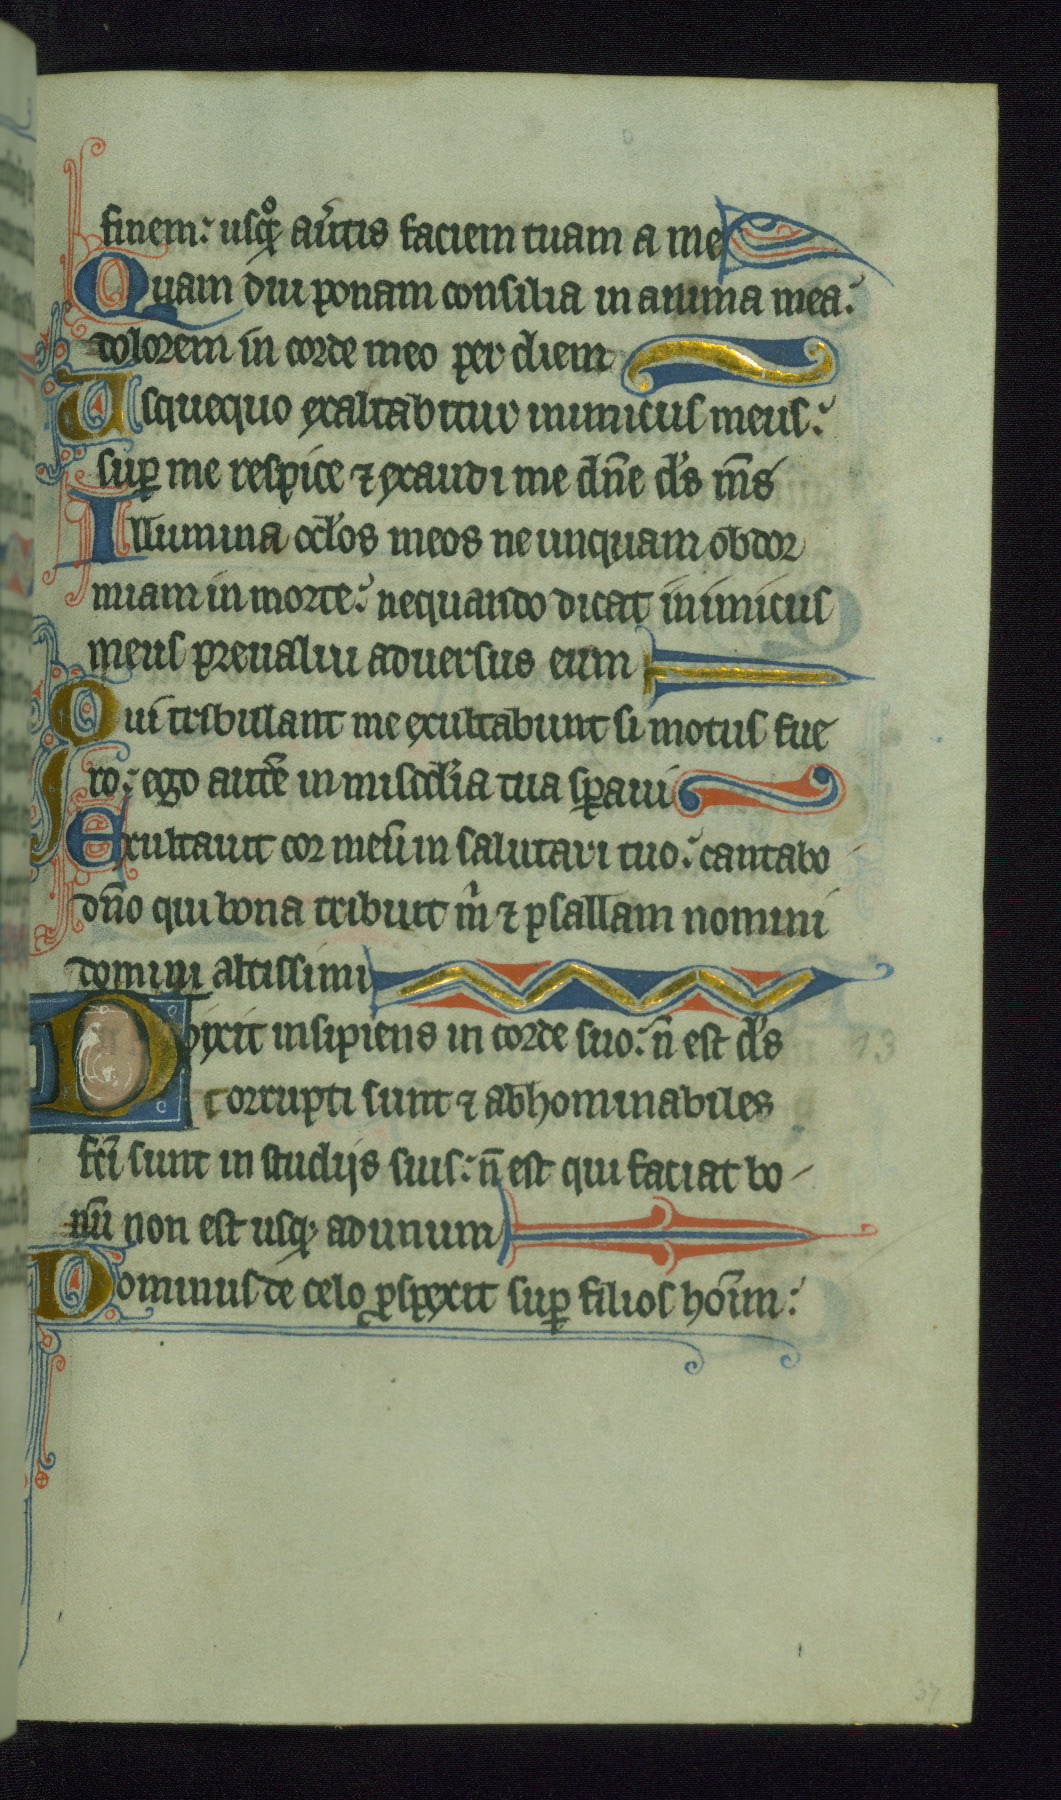 finem: usqͦ au̾tis faciem tuam a me
Quam diu ponam consilia in anima mea:
dolorem in corde meo per diem
Usquequo exaltabitur inimicus meus:
suꝑ me respice ⁊ exaudi me dn̄e ds̄ ms̄
Illumina oclos̄ meos ne unquam obdor
miam in morte: nequando dicat inimicus
meus preualui aduersus eum
Qui tribulant me exultabunt si motus fue
ro: ego autē in misc̄dia tua sꝑaui
Exultauit cor meū in salutari tuo: cantabo
dn̄o qui bona tribuit m̍ ⁊ psallam nomini
domini altissimi
Dixit insipiens in corde suo: n̄ est ds̄
13
Corrupti sunt ⁊ abhominabiles
fc̄i sunt in studijs suis: n̄ est qui faciat bo-
nū non est usqꝫ ad unum
Dominus de celo ꝓspexit suꝑ filios hoīm:
37